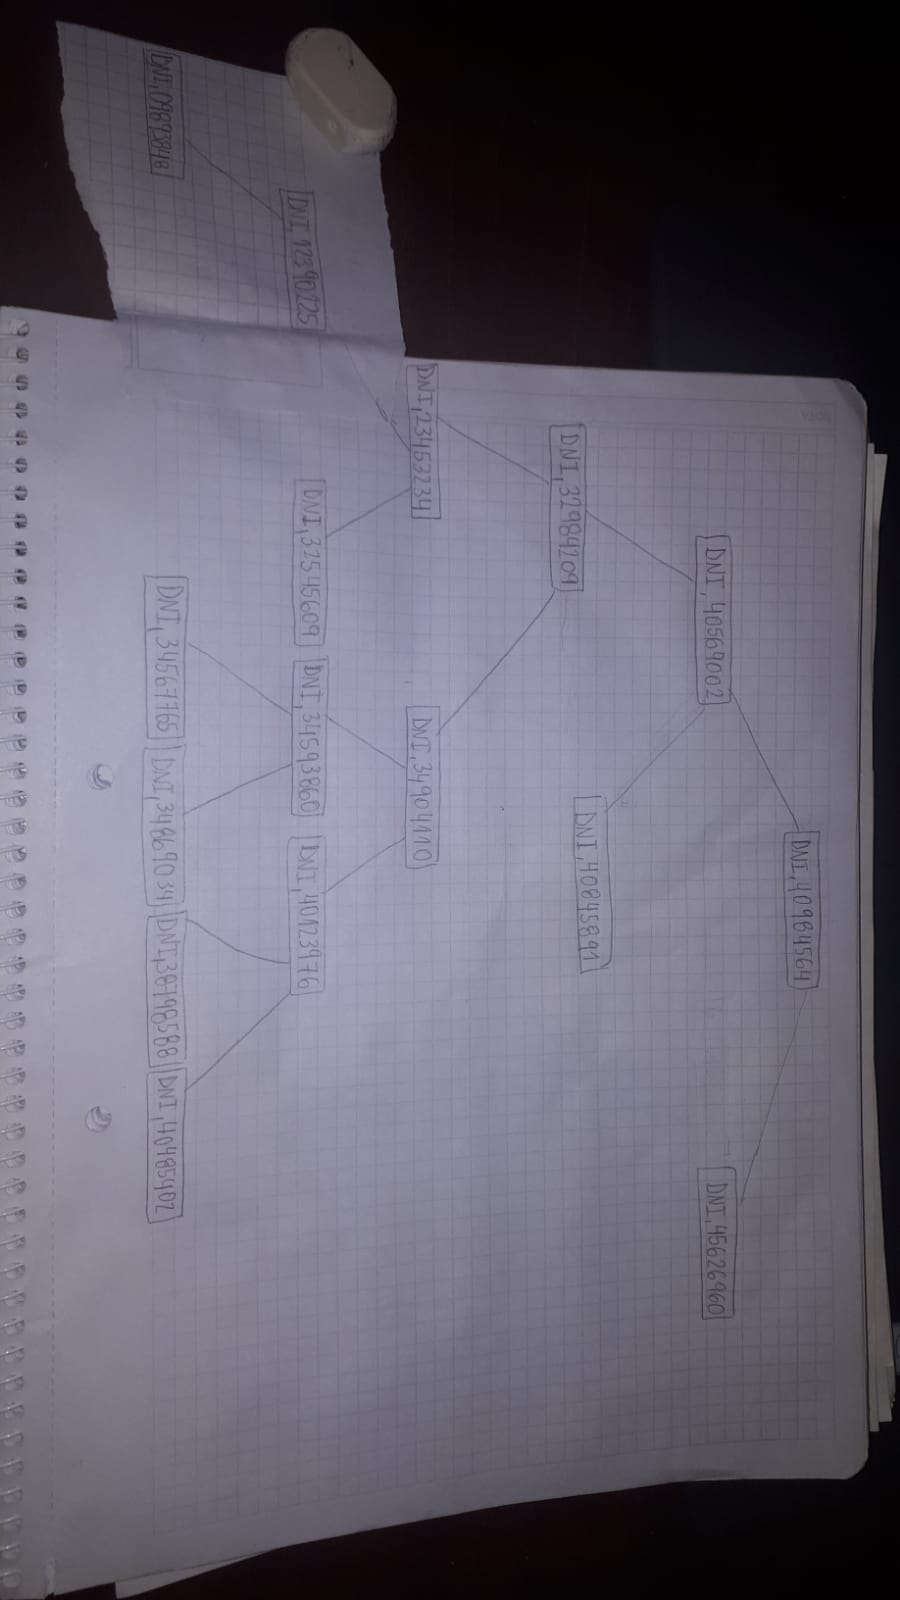 DNI,40984564
DNI, 40569002
DNI,45626960
DNI,40845891
DNI,32984209
DNI,23453234
DNI,34904110
DNI,12390225
DNI,32545609
DNI,34593860
DNI,40123976
DNI,09893848
DNI,34567765
DNI,34869034
DNI,38798588
DNI,40485402